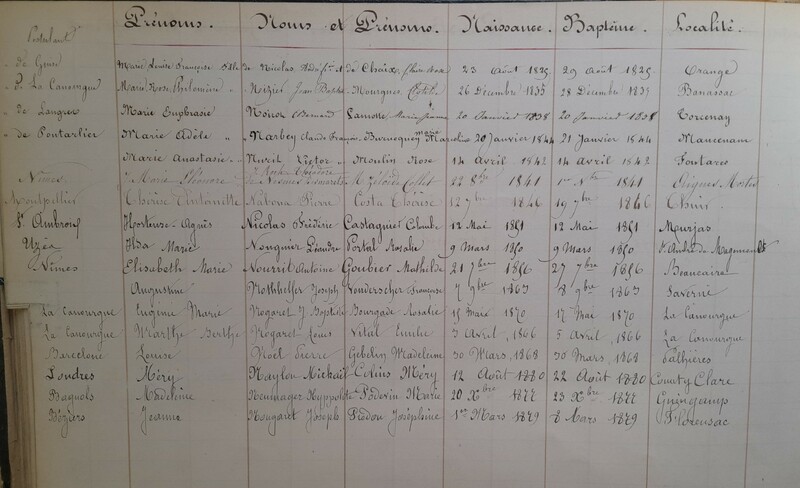 Postulant Prénoms. Noms et Prénoms. Naissance. Baptême. Localité.
de Marie Louise Françoise fille de Nicolas et de Chaix Claire Rose 23 Août 1825 29 Août 1825 Orange
d. La Canourgue Marie Rose Philomène " Nozier Jean Mourgues 26 Décembre 1835 28 Décembre 1835 Banassac
de Langres Marie Euphrasie Noirot Bernard Lamotte Marie Jeanne 20 Janvier 1838 20 Janvier 1838 Torcenay
de Pontarlier Marie Adèle " Narbey Claude François Marie 20 Janvier 1844 21 Janvier 1844
Marie Anastasie Nurit Victor " Moulin Rose 14 Avril 1842 14 Avril 1842 Fontares
Nîmes Marie de 22 8bre 1841 1er Nbre 1841 Aigues Mortes
Montpellier Thérèse Antoinette Nabona Pierre Costa Thérèse 12 7bre 1846 19 7bre 1846 Thuir
St Ambroix Hortense Agnès Nicolas Frédéric Castagnier 12 Mai 1851 12 Mai 1851
Uzès Ilda Marie Nouguier Léandre Portal Rosalie 9 Mars 1850 9 Mars 1850 St André de
Nîmes Elisabeth Marie Nourrit Antoine Goubier Mathilde 21 7bre 1856 27 7bre 1856 Beaucaire
Augustine Nothhelfer Joseph Vonderscher Françoise 7 9bre 1863 8 9bre 1863 Saverne
La Canourgue Eugénie Marie Nogaret J Baptiste Bourgade Rosalie 15 Mars 1870 17 Mai 1870 La Canourgue
La Canourgue Marthe Berthe Nogaret Louis Vital 3 Avril 1866 5 Avril 1866 La Canourgue
Barcelone Louise Noet Pierre Gebelin Madeleine 30 Mars 1868 30 Mars 1868
Londres Méry Naylon Mickaïl Colins Méry 12 Août 1880 22 Août 1880 County Clare
Bagnols Madeleine Hyppolite Podevin Marie 20 Xbre 1877 23 Xbre 1877
Béziers Jeanne Nougaret Joseph Joséphine 1er Mars 1879 8 Mars 1879 Florensac